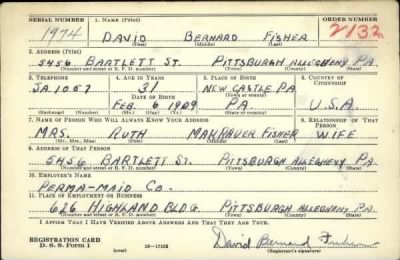 SERIAL NUMBER 1. NAME (Print) ORDER NUMBER
1974 DAVID BERNARD FISHER 2132
(First) (Middle) (Last)
2. ADDRESS (Print)
5456 BARTLETT ST. PITTSBURGH ALLEGHENY PA.
(Number and street or R. F. D. number) (Town) (County) (State)
3. TELEPHONE 4. AGE IN YEARS 5. PLACE OF BIRTH 6. COUNTRY OF CITIZENSHIP
JA. 1057 31 NEW CASTLE PA
DATE OF BIRTH (Town or county)
FEB. 6 1909 PA. U.S.A.
(Exchange) (Number) (Mo.) (Day) (Yr.) (State or country)
7. NAME OF PERSON WHO WILL ALWAYS KNOW YOUR ADDRESS 8. RELATIONSHIP OF THAT PERSON
MRS. RUTH FISHER WIFE
(Mr., Mrs., Miss) (First) (Middle) (Last)
9. ADDRESS OF THAT PERSON
5456 BARTLETT ST. PITTSBURGH ALLEGHENY PA.
(Number and street or R. F. D. number) (Town) (County) (State)
10. EMPLOYER'S NAME
PERMA-MAID CO.
11. PLACE OF EMPLOYMENT OR BUSINESS
626 HIGHLAND BLDG PITTSBURGH ALLEGHENY PA
(Number and street or R. F. D. number) (Town) (County) (State)
I AFFIRM THAT I HAVE VERIFIED ABOVE ANSWERS AND THAT THEY ARE TRUE.
REGISTRATION CARD
D. S. S. Form 1 (over) 16—17105 David Bernard Fisher
(Registrant's signature)